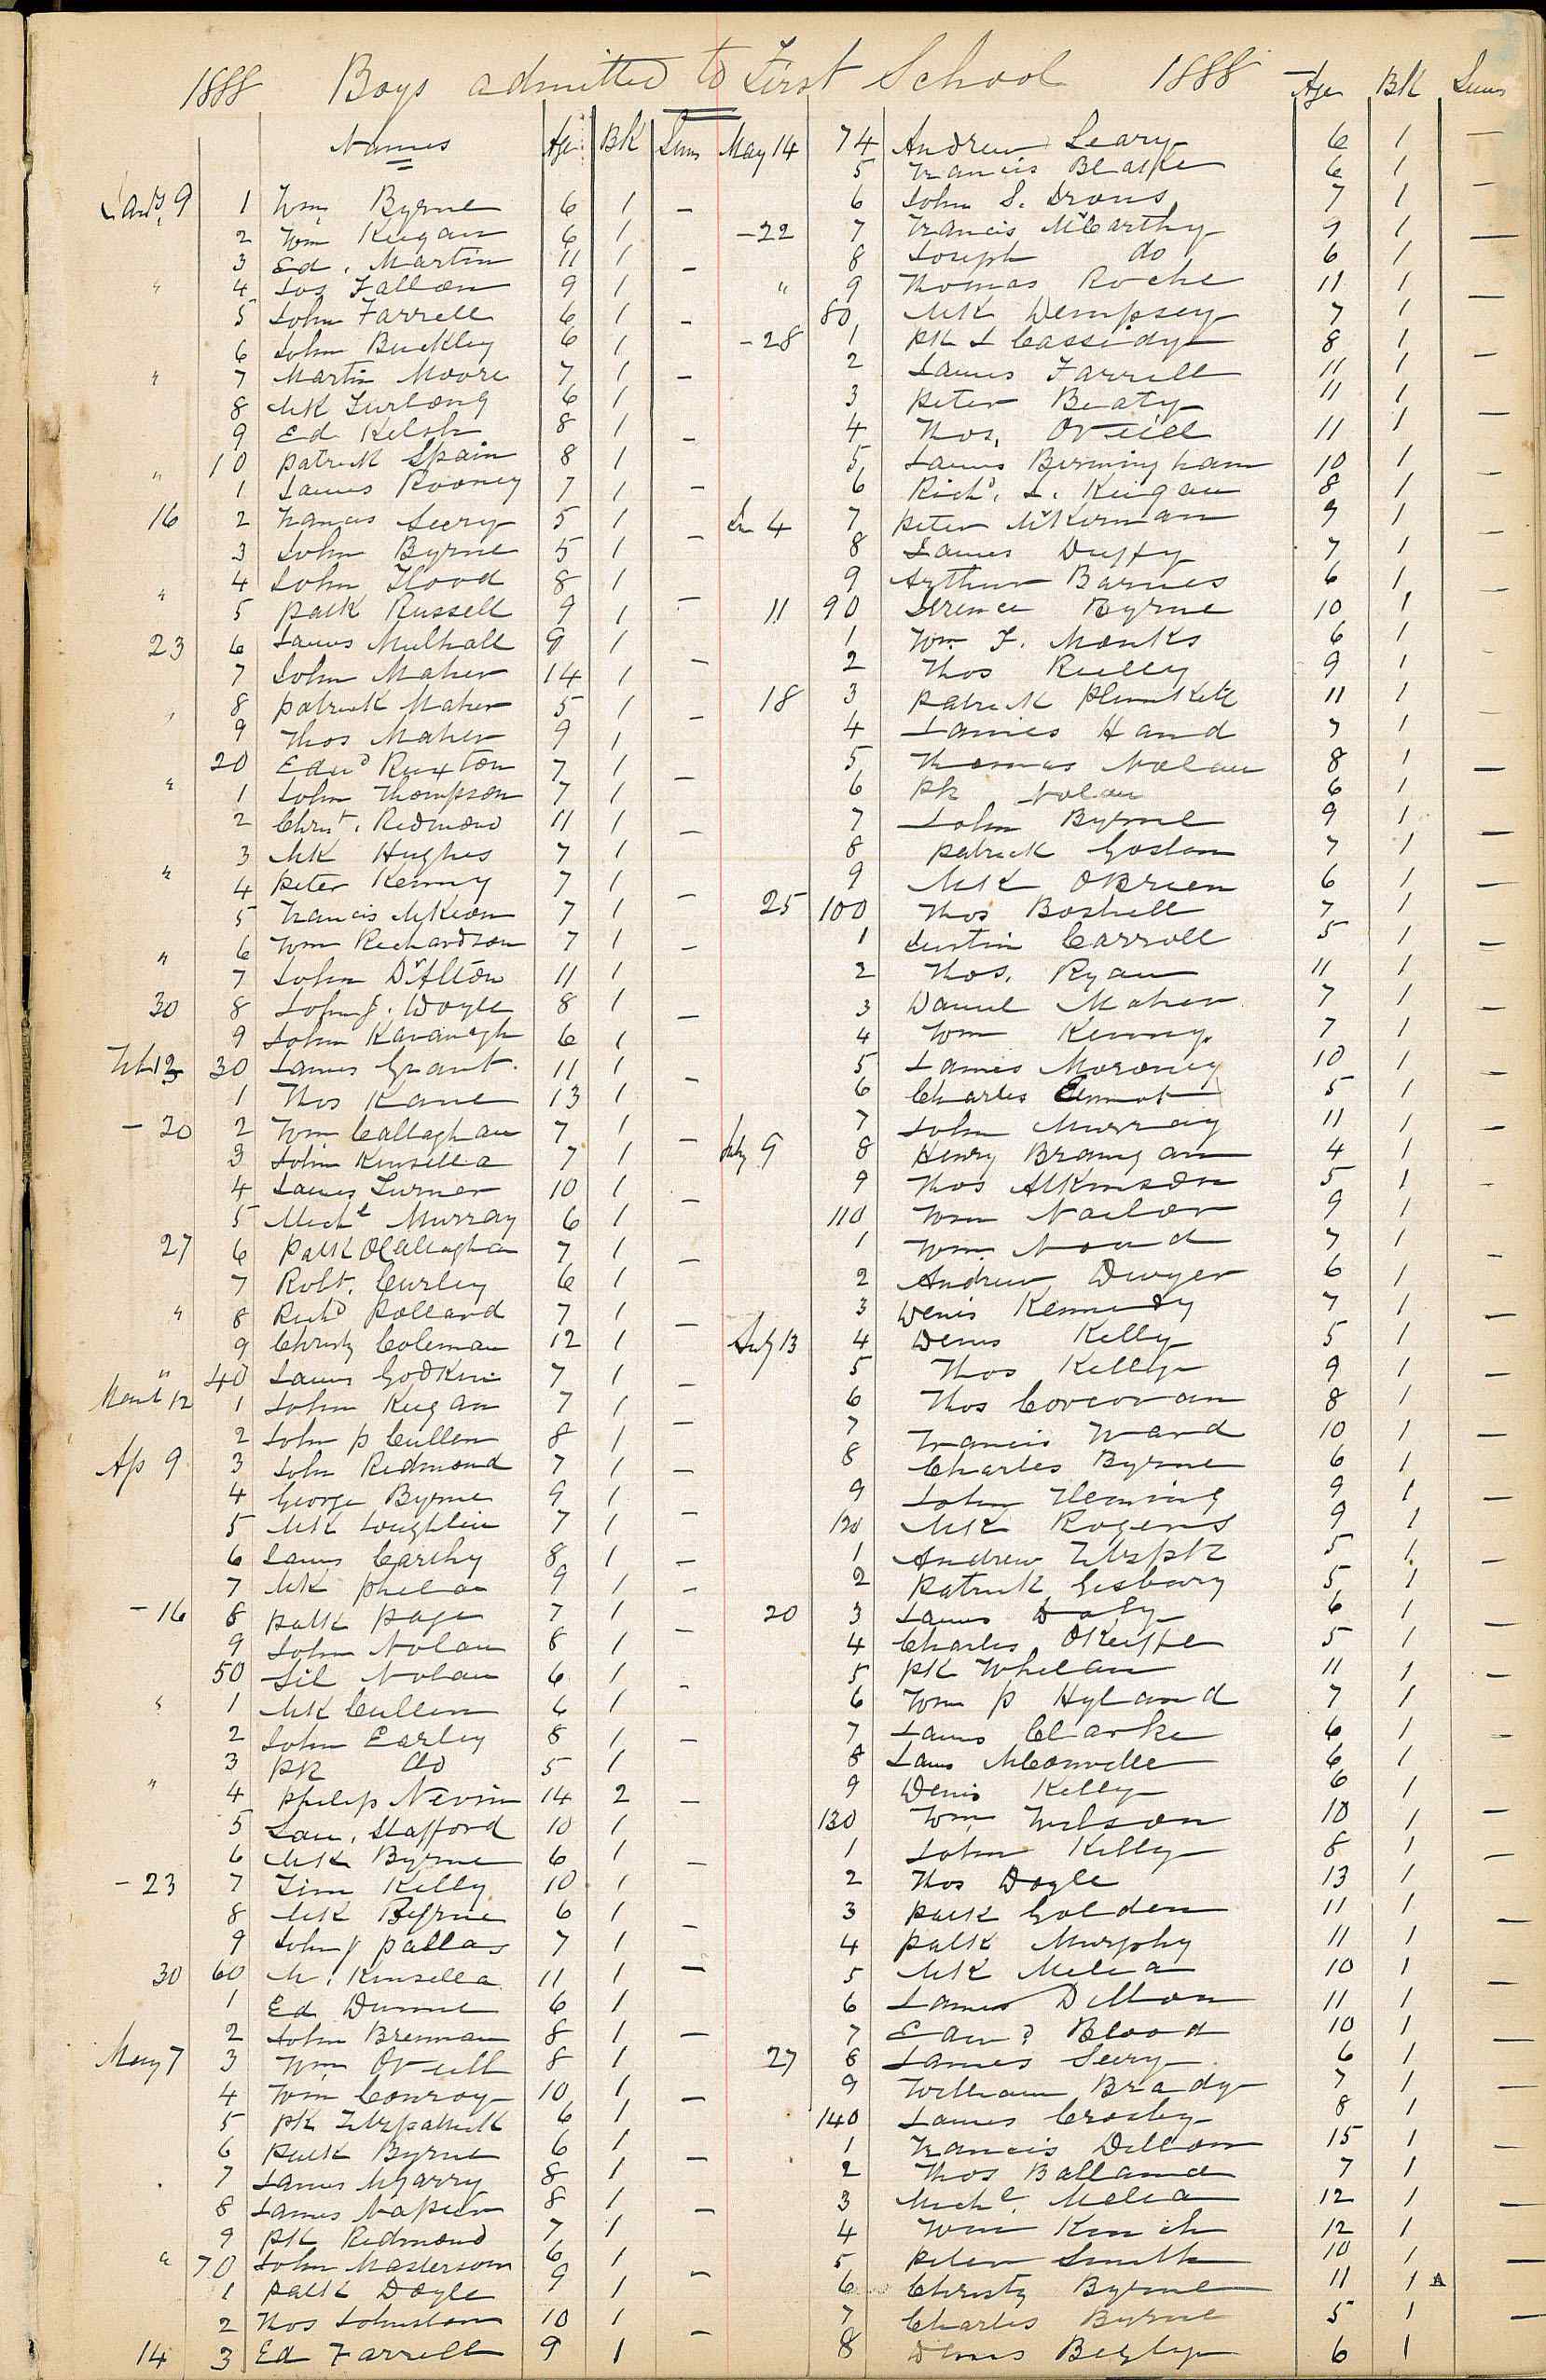 1888 Boys admitted to First School 1888
Names Age BK Sums
Jany 9 1 Wm Byrne 6 1 –
2 Wm Keegan 6 1
3 Ed. Martin 11 1 –
" 4 Jos Fallon 9 1
5 John Farrell 6 1 –
6 John Buckley 6 1
" 7 Martin Moore 7 1 –
8 Mk Furlong 6 1
9 Ed Kelsh 8 1 –
" 10 Patrick Spain 8 1
1 James Rooney 7 1 –
16 2 Francis Seery 5 1
3 John Byrne 5 1 –
" 4 John Flood 8 1
5 Patk Russell 9 1 –
23 6 James Mulhall 9 1
7 John Maher 14 1 –
" 8 Patrick Maher 5 1
9 Thos Maher 9 1 –
20 Edwd Ruxton 7 1
" 1 John Thompson 7 1 –
2 Christ. Redmond 11 1
3 Mk Hughes 7 1 –
" 4 Peter Kenny 7 1
5 Francis McKeon 7 1 –
" 6 Wm Richardson 7 1
7 John D'Alton 11 1 –
30 8 John J. Doyle 8 1
9 John Kavanagh 6 1 –
Feb 13 30 James Grant 11 1
1 Thos Kane 13 1 –
– 20 2 Wm Callaghan 7 1
3 John Kinsella 7 1 –
4 James Turner 10 1
5 Michl Murray 6 1 –
27 6 Patk OCallaghan 7 1
7 Robt. Curley 6 1 –
" 8 Richd Pollard 7 1
9 Christy Coleman 12 1 –
" 40 James Godkin 7 1
March 12 1 John Keegan 7 1 –
2 John P Cullen 8 1
Ap 9 3 John Redmond 7 1 –
4 George Byrne 9 1
5 Mk Loughlin 7 1 –
6 James Carthy 8 1
7 Mk Phelan 9 1 –
– 16 8 Patk Page 7 1
9 John Nolan 8 1 –
50 Sil Nolan 6 1
" 1 Mk Cullen 6 1 –
2 John Earley 8 1
3 Pk do 5 1 –
" 4 Philip Nevin 14 2
5 Lau. Stafford 10 1 –
6 Mk Byrne 6 1
– 23 7 Tim Kelly 10 1 –
8 Mk Byrne 6 1
9 John J Pallas 7 1 –
30 60 M. Kinsella 11 1
1 Ed Dunne 6 1 –
2 John Brennan 8 1
May 7 3 Wm ONeill 8 1 –
4 Wm Conroy 10 1
5 Pk Fitzpatrick 6 1 –
6 Patk Byrne 6 1
7 James McGarry 8 1 –
8 James Napier 8 1
9 Pk Redmond 7 1 –
" 70 John Masterson 6 1
1 Patk Doyle 9 1 –
2 Thos Johnston 10 1
14 3 Ed Farrell 9 1 –
Age BK Sums
May 14 74 Andrew Leary 6 1 –
5 Francis Blake 6 1
6 John S. Drons 7 1 –
– 22 7 Francis McCarthy 7 1
8 Joseph do 6 1 –
" 9 Thomas Roche 11 1
80 Mk Dempsey 7 1 –
– 28 1 Pk J Cassidy 8 1
2 James Farrell 11 1 –
3 Peter Beaty 11 1
4 Thos. ONeill 11 1 –
5 James Birmingham 10 1
6 Richd. J. Keegan 8 1 –
Ju 4 7 Peter McKernan 9 1
8 James Duffy 7 1 –
9 Arthur Barnes 6 1
11 90 Terence Byrne 10 1 –
1 Wm F. Monks 6 1
2 Thos Reilly 9 1 –
18 3 Patrick Plunkett 11 1
4 James Hand 7 1 –
5 Thomas Nolan 8 1
6 Pk Nolan 6 1 –
7 John Byrne 9 1
8 Patrick Goslan 7 1 –
9 Mk OBrien 6 1
25 100 Thos Boshell 7 1 –
1 Justin Carroll 5 1
2 Thos. Ryan 11 1 –
3 Daniel Maher 7 1
4 Wm Kenny 7 1 –
5 James Moroney 10 1
6 Charles Emmot 5 1 –
7 John Murray 11 1
July 9 8 Henry Branigan 4 1 –
9 Thos Atkinson 5 1
110 Wm Nailor 9 1 –
1 Wm. Noud 7 1
2 Andrew Dwyer 6 1 –
3 Denis Kennedy 7 1
July 13 4 Denis Kelly 5 1 –
5 Thos Kelly 9 1
6 Thos Corcoran 8 1 –
7 Francis Ward 10 1
8 Charles Byrne 6 1 –
9 John Fleming 9 1
120 Mk Rogers 9 1 –
1 Andrew Fitzptk 5 1
2 Patrick Gisbury 5 1 –
20 3 James Daly 6 1
4 Charles OKeiffe 5 1 –
5 Pk Whelan 11 1
6 Wm P Hyland 7 1 –
7 James Clarke 6 1
8 Jams McConville 6 1 –
9 Denis Kelly 6 1
130 Wm Wilson 10 1 –
1 John Kelly 8 1
2 Thos Doyle 13 1 –
3 Patk Golden 11 1
4 Patk Murphy 11 1 –
5 Mk Melia 10 1
6 James Dillon 11 1 –
7 Edwd Blood 10 1
27 8 James Seery 6 1 –
9 William Brady 7 1
140 James Crosby 8 1 –
1 Francis Dillon 15 1
2 Thos Balland 7 1 –
3 Michl. Melia 12 1
4 Wm Kinch 12 1 –
5 Peter Smith 10 1
6 Christy Byrne 11 1 A –
7 Charles Byrne 5 1
8 Denis Begley 6 1 –